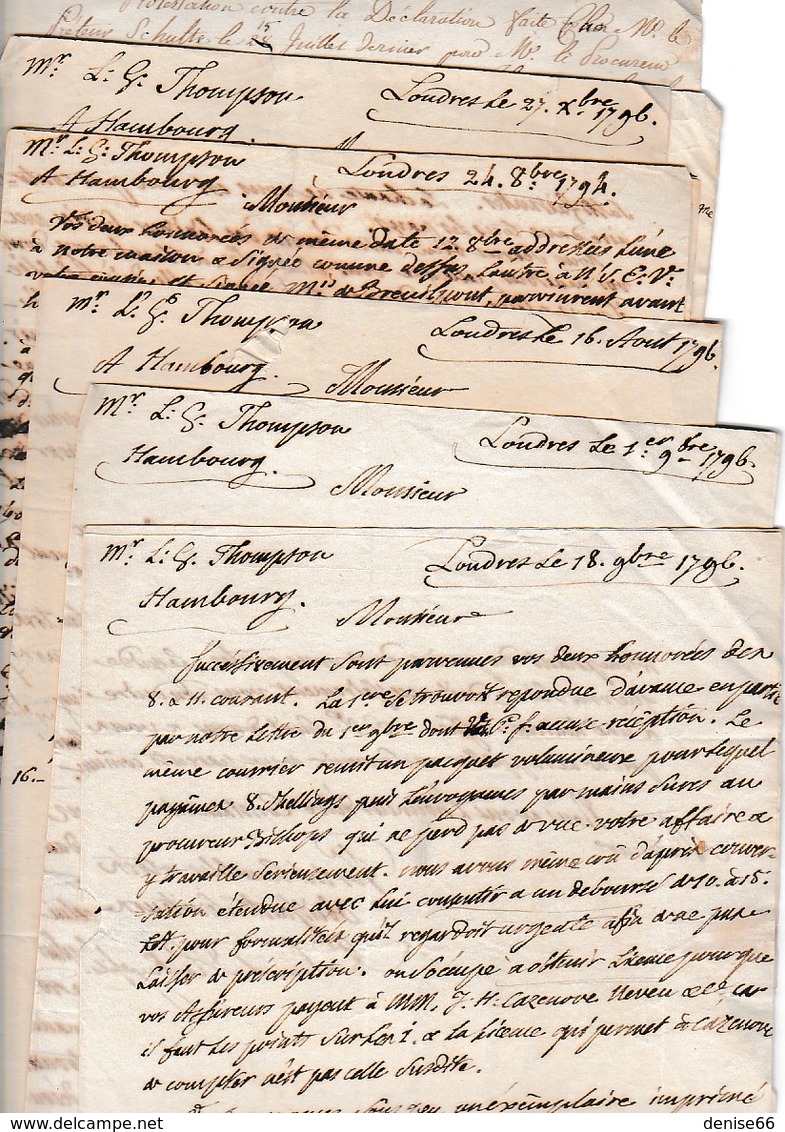 Protestation contre la Déclaration faite chez Mr. le
Préteur Schulte le 15 Juillet dernier pour Mr. le Procureur
Mr. L: G: Thompson
Londres le 27. Xbre 1796.
A Hambourg.
Mr. L: G: Thompson
Londres 24. 8bre 1794.
A Hambourg
Monsieur
Vos deux honnorées de même date 12. 8bre addressées l'une
à notre maison & signée comme dessus, l'autre à N. S. E. V.
et signée Mis. de Breuilpont, parvinrent avant
Mr. L: G: Thompson
Londres le 16. Aout 1796.
A Hambourg.
Monsieur
Mr. L: G: Thompson
Londres le 1.er 9bre 1796.
Hambourg.
Monsieur
Mr. L: G: Thompson
Londres le 18. 9bre 1796.
Hambourg.
Monsieur
Successivement sont parvenues vos deux honnorées des
8. & 11. courant. La 1ere se trouvoit repondue d'avance en partie
par notre lettre du 1er 9bre dont accuse réception. Le
même courrier remit un pacquet volumineux pour lequel
payames 8. Shellings puis l'envoyames par mains sures au
procureur Bishops qui ne perd pas de vue votre affaire &
y travaille serieusement. nous avons même crû d'après conver-
sation étendue avec lui consentir a un debourse de 10. à 15.
L st. pour formalités qu'il regardoit urgente afin de ne pas
laisser de préscription. on s'occupe à obtenir License pour que
vos Assureurs payent à MM. J. H. Cazenove Neveu & Ce. car
il faut les points sur les i. & la License qui permet à Cazenove
de compter n'est pas celle susdite.
un exemplaire imprimé
16.-
denise66